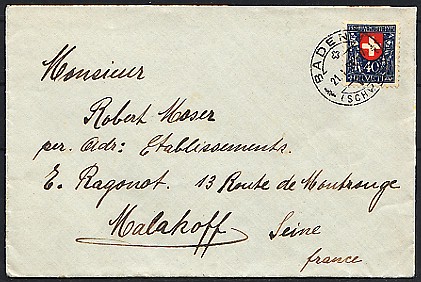 Monsieur
Robert Moser
per. Adr: Etablissements.
E. Ragonot. 13 Route de Montrouge
Malakoff Seine
france.
BADEN
21.
(SCHW
40
HELVETIA